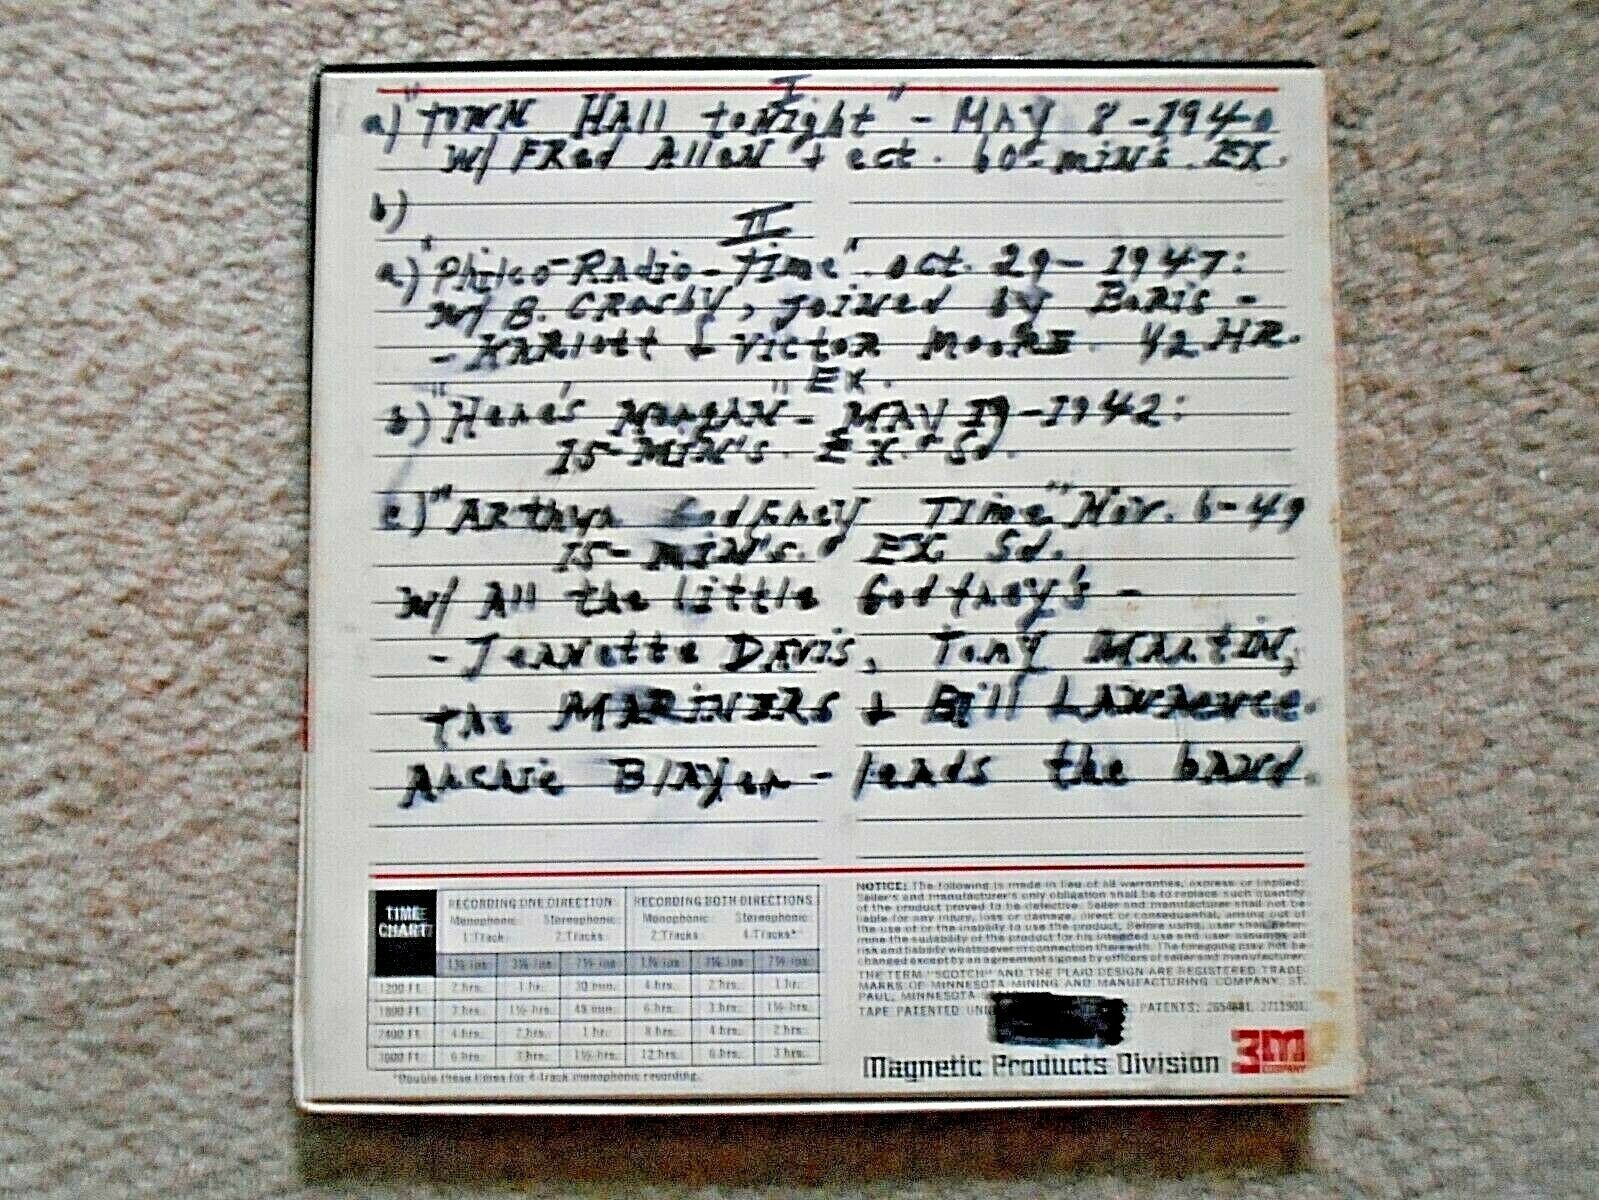 I
a) "TOWN HAll toNight" - MAY 8-1940
W/ FRed AlleN + ect. 60-miN's. EX.
b)
II
a) "Philco-RAdio-Time" oct. 29-1947:
W/ B. CROSBY, joiNed by BORis -
- KARlott + Victor MooRE. 1/2 HR.
EX.
b) "HeRe's MorgAN" - MAY 19-1942:
15-MIN's. EX. Sd.
c) "ARthuR GodfRey TIme" Nov. 6-49
15-MIN's. EX Sd.
W/ All the little GodfRey's -
- JeANette DAvis, Tony MARtIN,
the MARINERS + Bill LAWReNce.
ARchie BlAyeR - leAds the bANd.
TIME CHART
RECORDING ONE DIRECTION RECORDING BOTH DIRECTIONS
Monophonic Stereophonic Monophonic Stereophonic
1 Track 2 Tracks 2 Tracks 4-Tracks*
1⅞ ips 3¾ ips 7½ ips 1⅞ ips 3¾ ips 7½ ips
1200 Ft. 2 hrs. 1 hr. 30 min. 4 hrs. 2 hrs. 1 hr.
1800 Ft. 3 hrs. 1½ hrs. 45 min. 6 hrs. 3 hrs. 1½ hrs.
2400 Ft. 4 hrs. 2 hrs. 1 hr. 8 hrs. 4 hrs. 2 hrs.
3600 Ft. 6 hrs. 3 hrs. 1½ hrs. 12 hrs. 6 hrs. 3 hrs.
*Double these times for 4-track monophonic recording.
NOTICE: The following is made in lieu of all warranties, express or implied:
Seller's and manufacturer's only obligation shall be to replace such quantity
of the product proved to be defective. Seller and manufacturer shall not be
liable for any injury, loss or damage, direct or consequential, arising out of
the use of or the inability to use the product. Before using, user shall deter-
mine the suitability of the product for his intended use and user assumes all
risk and liability whatsoever in connection therewith. The foregoing may not be
changed except by an agreement signed by officers of seller and manufacturer.
THE TERM "SCOTCH" AND THE PLAID DESIGN ARE REGISTERED TRADE-
MARKS OF MINNESOTA MINING AND MANUFACTURING COMPANY, ST.
PAUL, MINNESOTA
TAPE PATENTED PATENTS: 2711901.
Magnetic Products Division 3M
COMPANY